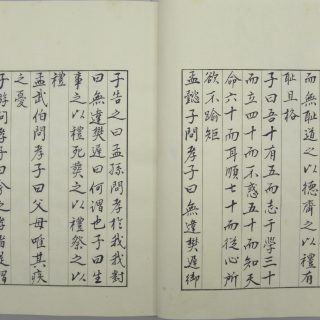 而無恥道之以禮有
恥且格
子曰吾十有五而志于學三十
而立四十而不惑五十而知天
命六十而耳順七十而從心所
欲不踰矩
孟懿子問孝子曰無違樊遲御
子告之曰孟孫問孝於我我對
曰無違樊遲曰何謂也子曰生
事之以禮死葬之以禮祭之以
禮
孟武伯問孝子曰父母唯其疾
之憂
子游問孝子曰今之孝者是謂